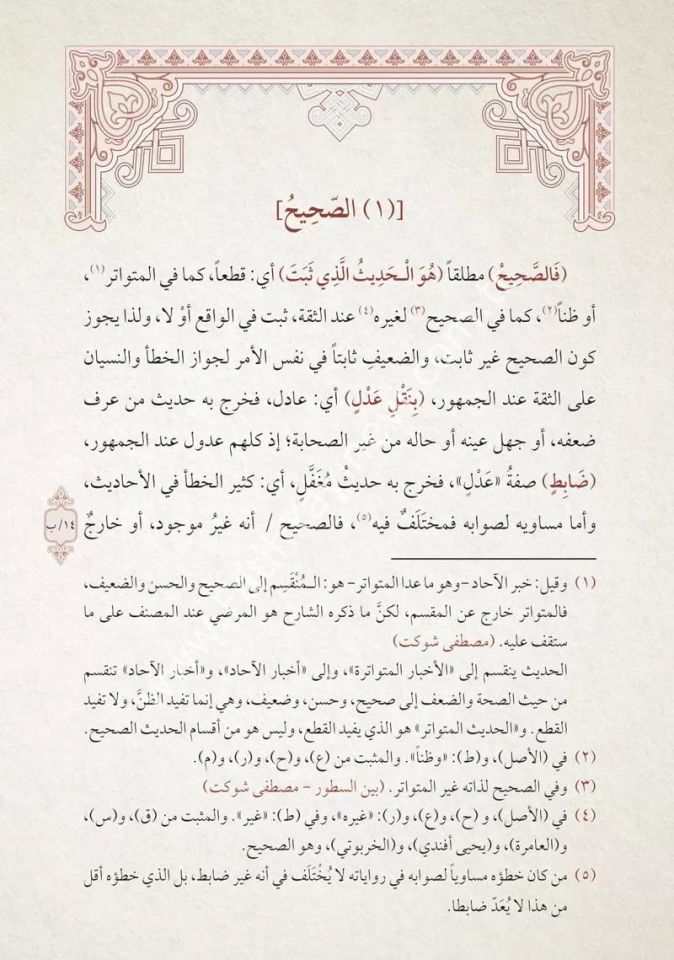 [(١) الصّحِيحُ]
(فَالصَّحِيحُ) مطلقاً (هُوَ الْـحَدِيثُ الَّذِي ثَبَتَ) أي: قطعاً، كما في المتواتر(١)،
أو ظناً(٢)، كما في الصحيح(٣) لغيره(٤) عند الثقة، ثبت في الواقع أوْ لا، ولذا يجوز
كون الصحيح غير ثابت، والضعيفِ ثابتاً في نفس الأمر لجواز الخطأ والنسيان
على الثقة عند الجمهور، (بِنَقْلِ عَدْلٍ) أي: عادل، فخرج به حديث من عرف
ضعفه، أو جهل عينه أو حاله من غير الصحابة؛ إذ كلهم عدول عند الجمهور،
(ضَابِطٍ) صفةُ «عَدْلٍ»، فخرج به حديثُ مُغَفَّلٍ، أي: كثير الخطأ في الأحاديث،
وأما مساويه لصوابه فمختَلَفٌ فيه(٥)، فالصحيح / أنه غيرُ موجود، أو خارجٌ
١٤/ب
(١) وقيل: خبر الآحاد -وهو ما عدا المتواتر- هو: الـمُنْقَسِم إلى الصحيح والحسن والضعيف،
فالمتواتر خارج عن المقسم، لكنَّ ما ذكره الشارح هو المرضي عند المصنف على ما
ستقف عليه. (مصطفى شوكت)
الحديث ينقسم إلى «الأخبار المتواترة»، وإلى «أخبار الآحاد»، و«أخبار الآحاد» تنقسم
من حيث الصحة والضعف إلى صحيح، وحسن، وضعيف، وهي إنما تفيد الظنَّ، ولا تفيد
القطع. و«الحديث المتواتر» هو الذي يفيد القطع، وليس هو من أقسام الحديث الصحيح.
(٢) في (الأصل)، و(ط): «وظناً». والمثبت من (ع)، و(ح)، و(ر)، و(م).
(٣) وفي الصحيح لذاته غير المتواتر. (بين السطور - مصطفى شوكت)
(٤) في (الأصل)، و(ح)، و(ع)، و(ر): «غيره»، وفي (ط): «غير». والمثبت من (ق)، و(س)،
و(العامرة)، و(يحيى أفندي)، و(الخربوتي)، وهو الصحيح.
(٥) من كان خطؤه مساوياً لصوابه في رواياته لا يُخْتَلَف في أنه غير ضابط، بل الذي خطؤه أقل
من هذا لا يُعَدّ ضابطا.